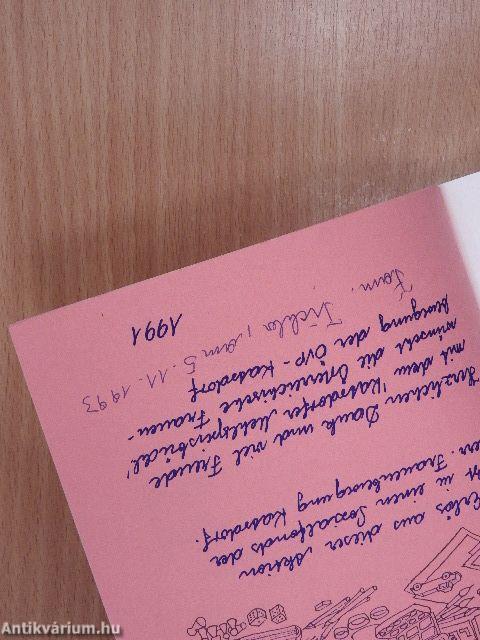 Erlös aus dieser Aktion
in einen Sozialfonds der
Frauenbewegung Kalsdorf.
Herzlichen Dank und viel Freude
mit dem "Kalsdorfer Mehlspeisbüchl"
wünscht die Österreichische Frauen-
bewegung der ÖVP - Kalsdorf
1991
Fam. am 5.11.1993
Antikvárium.hu